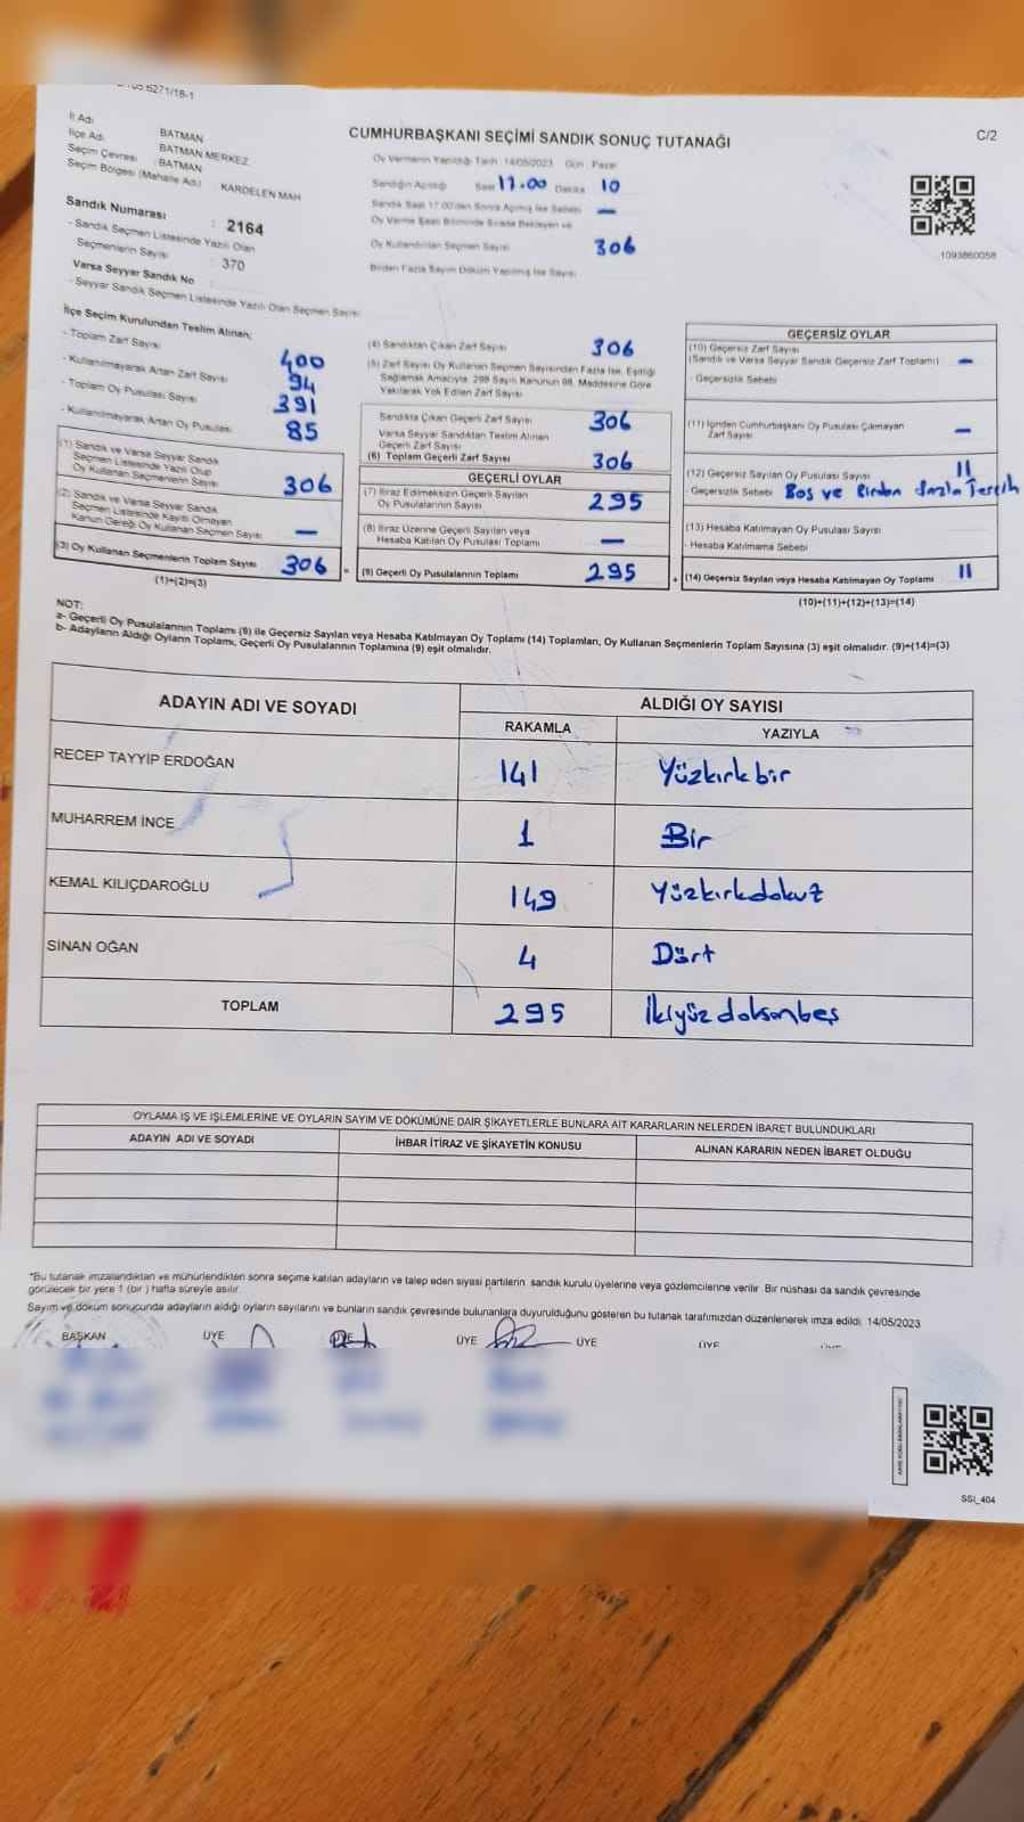 İl Adı
İlçe Adı
Seçim Çevresi
Seçim Bölgesi (Mahalle Adı)
BATMAN
BATMAN MERKEZ
BATMAN
KARDELEN MAH
CUMHURBAŞKANI SEÇİMİ SANDIK SONUÇ TUTANAĞI
C/2
Oy Vermenin Yapıldığı Tarih : 14/05/2023 Gün : Pazar
Sandığın Açıldığı Saat 17.00 Dakika 10
Sandık Saat 17:00'den Sonra Açılmış İse Sebebi —
Oy Kullandırılan Seçmen Sayısı 306
Birden Fazla Sayım Döküm Yapılmış İse Sayısı
1093860058
Sandık Numarası : 2164
- Sandık Seçmen Listesinde Yazılı Olan
Seçmenlerin Sayısı : 370
Varsa Seyyar Sandık No
- Seyyar Sandık Seçmen Listesinde Yazılı Olan Seçmen Sayısı
İlçe Seçim Kurulundan Teslim Alınan;
- Toplam Zarf Sayısı 400
- Kullanılmayarak Artan Zarf Sayısı 94
- Toplam Oy Pusulası Sayısı 391
- Kullanılmayarak Artan Oy Pusulası 85
(1) Sandık ve Varsa Seyyar Sandık
Seçmen Listesinde Yazılı Olup
Oy Kullanan Seçmenlerin Sayısı 306
(2) Sandık ve Varsa Seyyar Sandık
Seçmen Listesinde Kayıtlı Olmayan
Kanun Gereği Oy Kullanan Seçmen Sayısı —
(3) Oy Kullanan Seçmenlerin Toplam Sayısı 306 =
(1)+(2)=(3)
(4) Sandıktan Çıkan Zarf Sayısı 306
(5) Zarf Sayısı Oy Kullanan Seçmen Sayısından Fazla İse, Eşitliği
Sağlamak Amacıyla, 298 Sayılı Kanunun 98. Maddesine Göre
Yakılarak Yok Edilen Zarf Sayısı
Sandıkta Çıkan Geçerli Zarf Sayısı 306
Varsa Seyyar Sandıktan Teslim Alınan
Geçerli Zarf Sayısı
(6) Toplam Geçerli Zarf Sayısı 306
GEÇERLİ OYLAR
(7) İtiraz Edilmeksizin Geçerli Sayılan
Oy Pusulalarının Sayısı 295
(8) İtiraz Üzerine Geçerli Sayılan veya
Hesaba Katılan Oy Pusulası Toplamı —
(9) Geçerli Oy Pusulalarının Toplamı 295 +
GEÇERSİZ OYLAR
(10) Geçersiz Zarf Sayısı
(Sandık ve Varsa Seyyar Sandık Geçersiz Zarf Toplamı) —
- Geçersizlik Sebebi
(11) İçinden Cumhurbaşkanı Oy Pusulası Çıkmayan
Zarf Sayısı —
(12) Geçersiz Sayılan Oy Pusulası Sayısı 11
- Geçersizlik Sebebi Boş ve Birden fazla Tercih
(13) Hesaba Katılmayan Oy Pusulası Sayısı
- Hesaba Katılmama Sebebi
(14) Geçersiz Sayılan veya Hesaba Katılmayan Oy Toplamı 11
(10)+(11)+(12)+(13)=(14)
NOT:
a- Geçerli Oy Pusulalarının Toplamı (9) ile Geçersiz Sayılan veya Hesaba Katılmayan Oy Toplamı (14) Toplamları, Oy Kullanan Seçmenlerin Toplam Sayısına (3) eşit olmalıdır. (9)+(14)=(3)
b- Adayların Aldığı Oyların Toplamı, Geçerli Oy Pusulalarının Toplamına (9) eşit olmalıdır.
ADAYIN ADI VE SOYADI
ALDIĞI OY SAYISI
RAKAMLA YAZIYLA
RECEP TAYYİP ERDOĞAN 141 Yüzkırkbir
MUHARREM İNCE 1 Bir
KEMAL KILIÇDAROĞLU 149 Yüzkırkdokuz
SİNAN OĞAN 4 Dört
TOPLAM 295 İkiyüzdoksanbeş
OYLAMA İŞ VE İŞLEMLERİNE VE OYLARIN SAYIM VE DÖKÜMÜNE DAİR ŞİKAYETLERLE BUNLARA AİT KARARLARIN NELERDEN İBARET BULUNDUKLARI
ADAYIN ADI VE SOYADI İHBAR İTİRAZ VE ŞİKAYETİN KONUSU ALINAN KARARIN NEDEN İBARET OLDUĞU
*Bu tutanak imzalandıktan ve mühürlendikten sonra seçime katılan adayların ve talep eden siyasi partilerin sandık kurulu üyelerine veya gözlemcilerine verilir. Bir nüshası da sandık çevresinde
görülecek bir yere 1 (bir) hafta süreyle asılır.
Sayım ve döküm sonucunda adayların aldığı oyların sayılarını ve bunların sandık çevresinde bulunanlara duyurulduğunu gösteren bu tutanak tarafımızdan düzenlenerek imza edildi. 14/05/2023
BAŞKAN ÜYE ÜYE ÜYE ÜYE
SSI_404